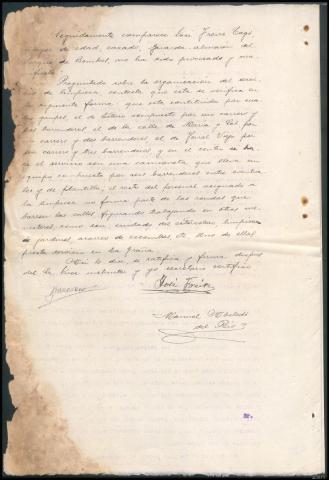 Seguidamente comparece José Freire Cagi,
mayor de edad, casado, Guarda-almacén del
Parque de Bombas, no ha sido procesado y ma-
nifiesta
Preguntado sobre la organización del servi-
cio de Limpieza, contesta que esta se verifica en
la siguiente forma: que está constituida por cua-
tro grupos, el de Esteiro compuesto por un carrero y
dos barrenderos el de la calle de María y Sol por
un carrero y dos barrenderos, el de Ferrol Viejo por
un carrero y tres barrenderos, y en el centro se ha-
ce el servicio con una camioneta que lleva un
grupo compuesto por seis barrenderos entre eventua-
les y de plantilla; el resto del personal asignado a
la limpieza no forma parte de las rondas que
barren las calles, figurando trabajando en otros me-
nesteres, como son cuidado del cementerio, limpieza
de jardines, acarreo de escombros etc. Uno de ellos
presta servicio en la Graña
Así lo dice, se ratifica y firma después
del Sr. Juez instructor y yo secretario certifico
José Freire
Manuel
del Río